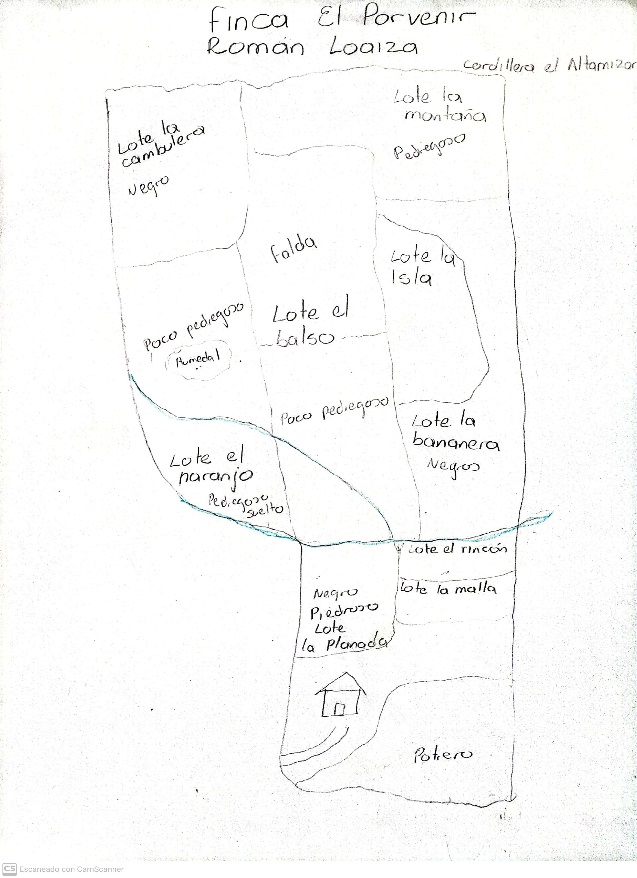 Finca El Porvenir
Román Loaiza
Cordillera el Altamizor
Lote la
montaña
Pedregoso
Lote la
cambulera
Negro
Falda
Lote la
Isla
Poco pedregoso
Humedal
Lote el
balso
Poco pedregoso
Lote la
bananera
Negros
Lote el
naranjo
Pedregoso
suelto
Lote el rincón
Lote la malla
Negro
Piedroso
Lote
la Planada
Potrero
CS Escaneado con CamScanner